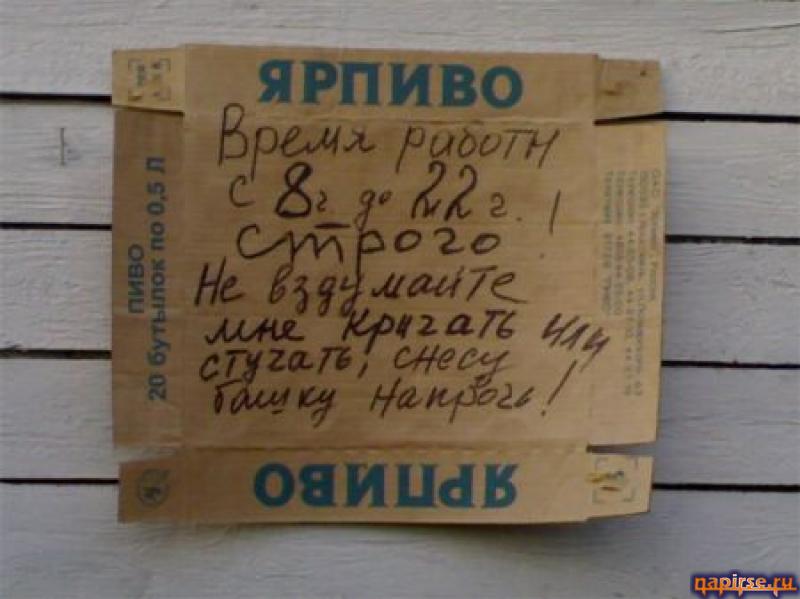 ЯРПИВО
Время работы
с 8ч до 22 г. !
строго !
Не вздумайте
мне кричать или
стучать, снесу
башку напрочь!
ПИВО
20 бутылок по 0,5 Л
ЯРПИВО
napirse.ru